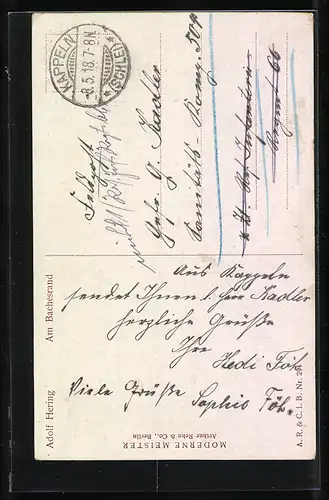 KAPPELN
-8.5.18.7-8N.
*(SCHLEI)*
Feldpost
Gefr. G. Kadler
Sanitäts-Komp. 509
Regmt 66
Aus Kappeln
sendet Ihnen l. Herr Kadler
herzliche Grüße
Ihre
Hedi Föh.
Viele Grüße Sophie Föh.
Adolf Hering
Am Bachesrand
MODERNE MEISTER
Arthur Rehn & Co., Berlin
A. R. & C. i. B. Nr.